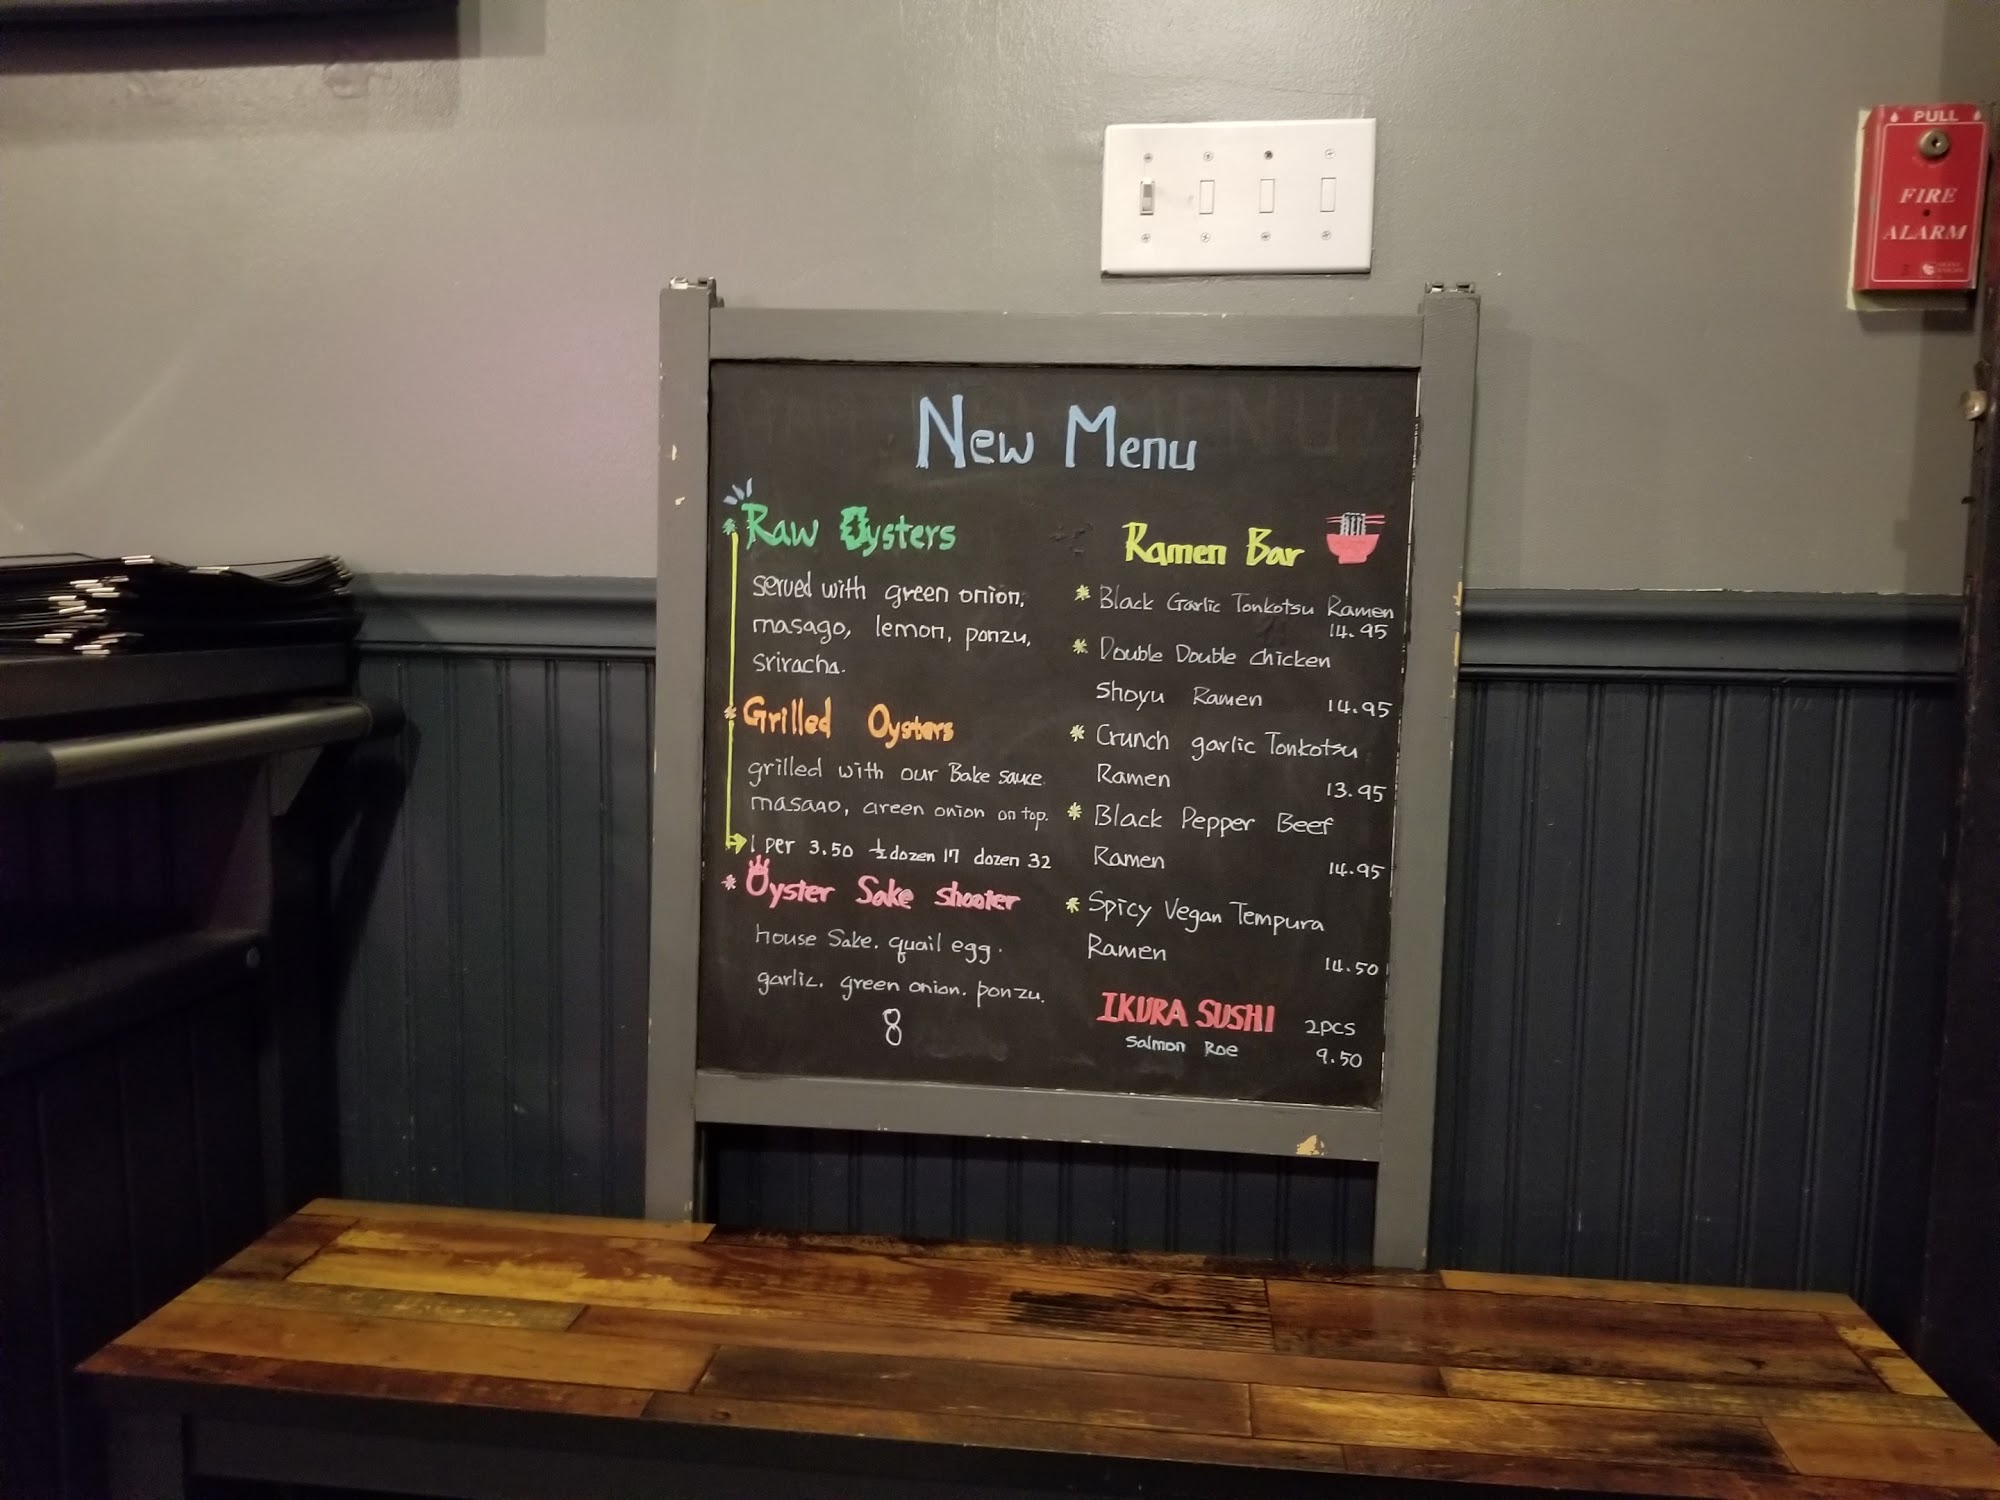 New Menu
Raw Oysters
served with green onion,
masago, lemon, ponzu,
sriracha.
Grilled Oysters
grilled with our Bake sauce
masago, green onion on top.
1 per 3.50 ½ dozen 17 dozen 32
Oyster Sake shooter
house Sake. quail egg.
garlic. green onion. ponzu.
8
Ramen Bar
* Black Garlic Tonkotsu Ramen
14.95
* Double Double chicken
shoyu Ramen 14.95
* Crunch garlic Tonkotsu
Ramen 13.95
* Black Pepper Beef
Ramen 14.95
* Spicy Vegan Tempura
Ramen 14.50
IKURA SUSHI 2pcs
Salmon Roe 9.50
PULL
FIRE
ALARM